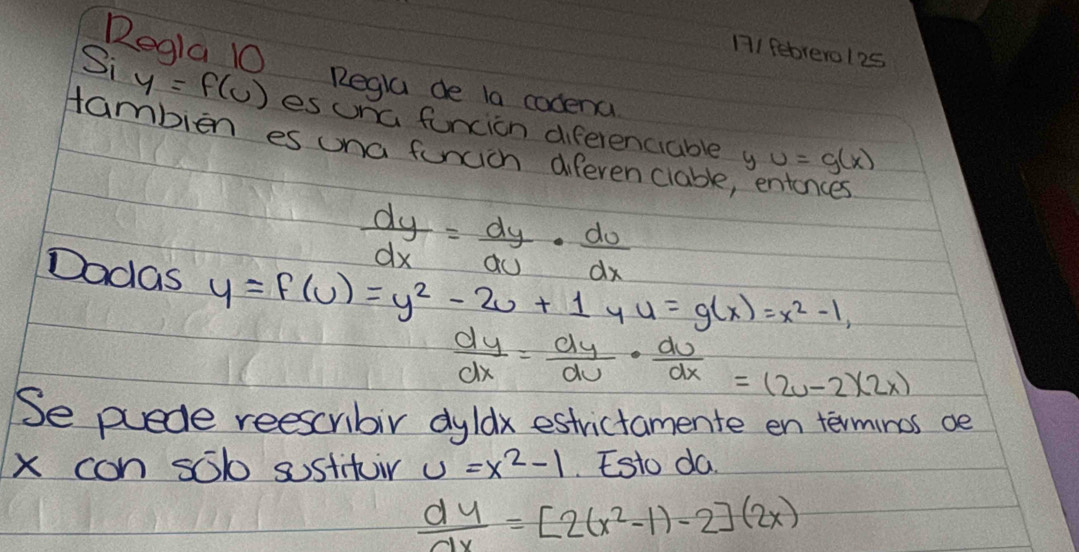 17/febrero/25
Regla 10 Regla de la cadena
Si y = f(u) es una función diferenciable y u = g(x)
también es una función diferenciable, entonces
dy/dx = dy/du · du/dx
Dadas y = f(u) = y² - 2u + 1 y u = g(x) = x² - 1,
dy/dx = dy/du · du/dx = (2u-2)(2x)
Se puede reescribir dy/dx estrictamente en términos de
x con sólo sustituir u = x² - 1. Esto da.
dy/dx = [2(x²-1)-2](2x)